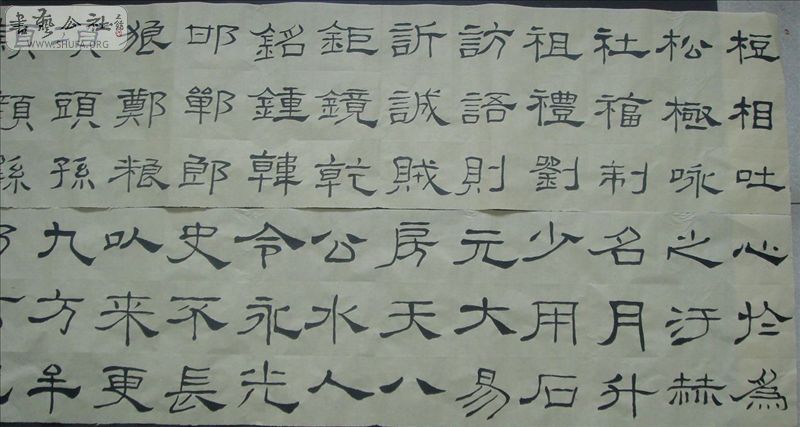 書藝公社
WWW.SHUFA.ORG
桓相吐
松極咏
社福制
祖禮劉
訪語則
訴誠賊
鉅鏡乾
銘鍾韓
邯鄲郎
狼鄭粮
頭孫
顏縣
心於為
之汙赫
名月升
少用石
元大易
房天八
公水人
令永光
史不長
以来更
九方牟